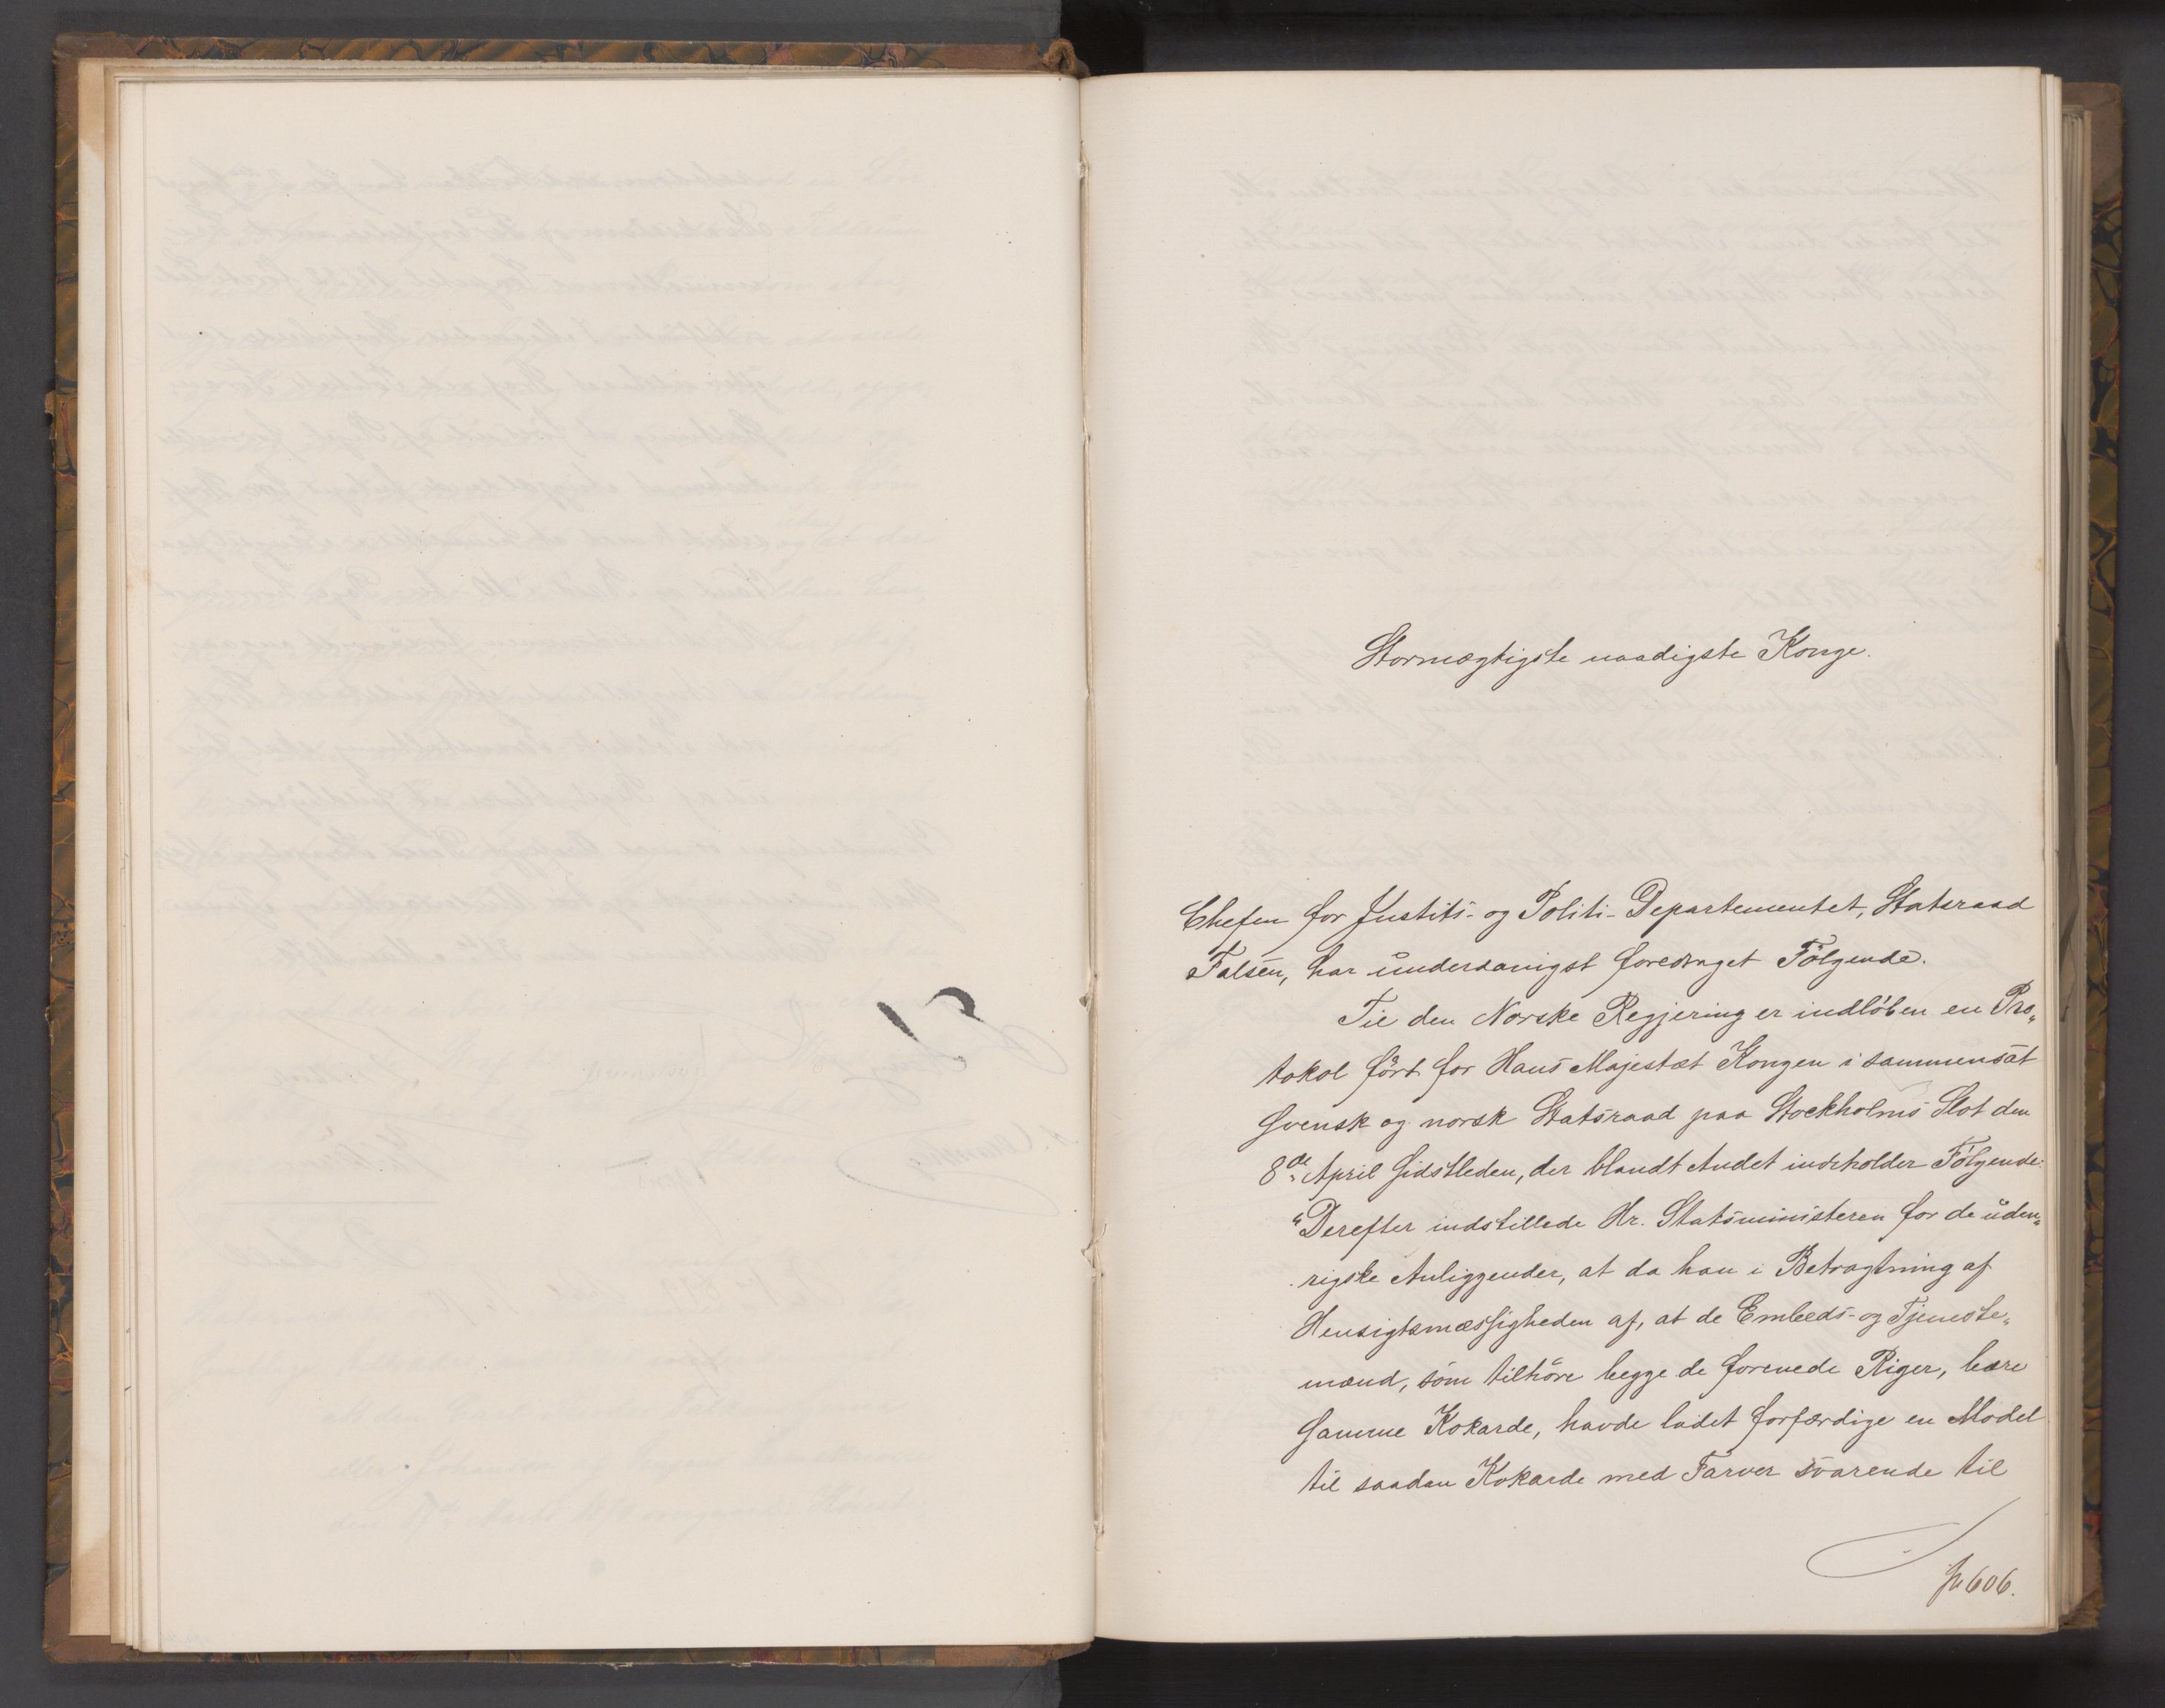 Stormægtigste naadigste Konge.
Chefen for Justits- og Politi-Departementet, Statsraad
Falsen, har underdanigst foredraget Følgende.
Til den Norske Regjering er indløben en Pro„
tokol ført for Hans Majestæt Kongen i sammensat
svensk og norsk Statsraad paa Stockholms Slot den
8de April sidstleden, der blandt Andet indeholder Følgende:
"Derefter indstillede Hr. Statsministeren for de uden„
rigske Anliggender, at da han i Betragtning af
Hensigtsmæssigheden af, at de Embeds- og Tjeneste„
mænd, som tilhøre begge de forenede Riger, bære
samme Kokarde, havde ladet forfærdige en Model
til saadan Kokarde med Farver svarende til
606.